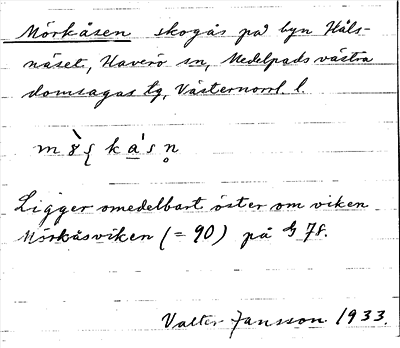 Mörkåsen skogås på byn Håls-
näset, Haverö sn, Medelpads västra
domsagas tg, Västernorrl. l.
Ligger omedelbart öster om viken
Mörkåsviken (= 90) på G 78.
Valter Jansson 1933.